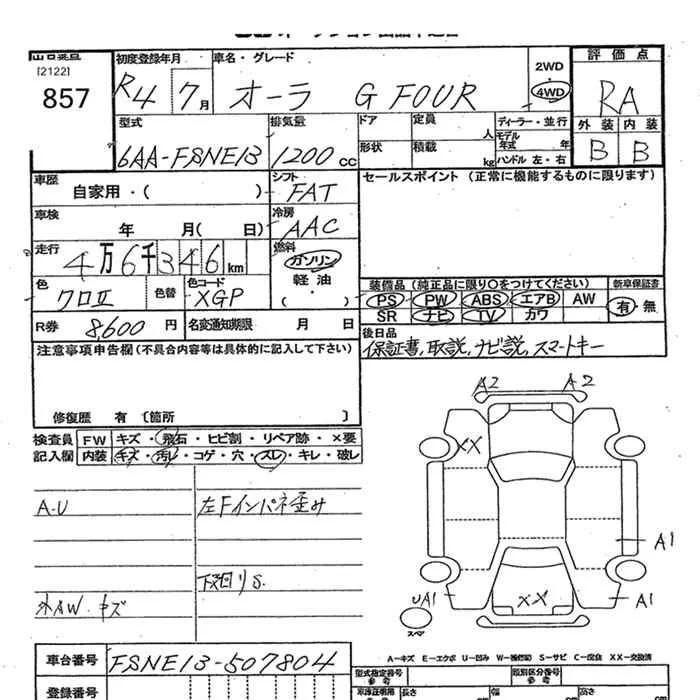 [2122]
857
初度登録年月
R4 7月
車名・グレード
オーラ G FOUR
2WD
4WD
評価点
RA
外装 内装
B B
型式
6AA-FSNE13
排気量
1200cc
ドア
形状
定員
人
積載
kg
ディーラー・並行
モデル年式 年
ハンドル 左・右
車歴
自家用・( )
シフト
FAT
セールスポイント(正常に機能するものに限ります)
車検
年 月( 日)
冷房
AAC
走行
4万6千346km
燃料
ガソリン
軽油
・( )
色
クロII
色替
色コード
XGP
R券 8600円
名変通知期限 月 日
装備品(純正品に限り○をつけてください)
PS PW ABS エアB AW
SR ナビ TV カワ
新車保証書
有・無
後日品
保証書,取説,ナビ説,スマートキー
注意事項申告欄(不具合内容等は具体的に記入して下さい)
修復歴 有〔箇所 〕
検査員記入欄
FW キズ・飛石・ヒビ割・リペア跡・×要
内装 キズ・汚レ・コゲ・穴・スレ・キレ・破レ
A-U
左Fインパネ歪み
下廻りS
外AW.キズ
A2 A2
XX
A1
UA1 XX A1
スペア
A-キズ E-エクボ U-凹み W-補修跡 S-サビ C-腐食 XX-交換済
車台番号
FSNE13-507804
登録番号
型式指定番号
参考
類別区分番号
参考
長さ
cm
幅
cm
高さ
cm